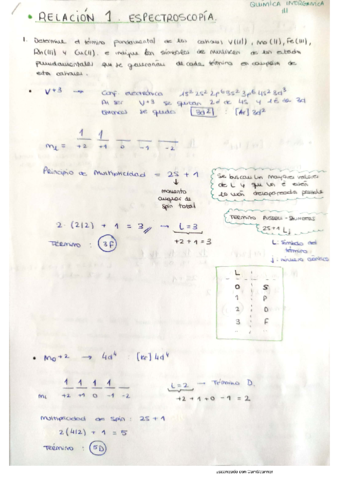 QUÍMICA INORGÁNICA
III
• RELACIÓN 1. ESPECTROSCOPÍA.
1. Determine el término fundamental de los cationes V(III), Mo(II), Fe(III),
Rh(III) y Cu(II) e indique las
fundamentales que se de cada término en complejos de
estos cationes.
• V+3 → Conf. electrónica 1s² 2s² 2p⁶ 3s² 3p⁶ 4s² 3d³
Al ser V+3 se quitan 2e de 4s y 1e de 3d
Entonces se queda 3d² : [Ar] 3d²
1 1
mL = +2 +1 0 -1 -2
Principio de Multiplicidad = 2S + 1
momento
angular de
spin total
Se buscan los mayores valores
de L y que los e estén
lo más desapareados posible
2·(2|2) + 1 = 3 → L=3
+2 +1 = 3
TÉRMINO : 3F
TÉRMINO RUSSELL-SAUNDERS
2S+1 L J
L: Símbolo del
término
J: número cuántico
L
0 S
1 P
2 D
3 F
• Mo+2 → 4d⁴ [Kr] 4d⁴
1 1 1 1
mL +2 +1 0 -1 -2
L=2 → Término D.
+2 +1 +0 -1 = 2
Multiplicidad de Spin : 2S + 1
2(4|2) + 1 = 5
TÉRMINO : 5D
Escaneado con CamScanner